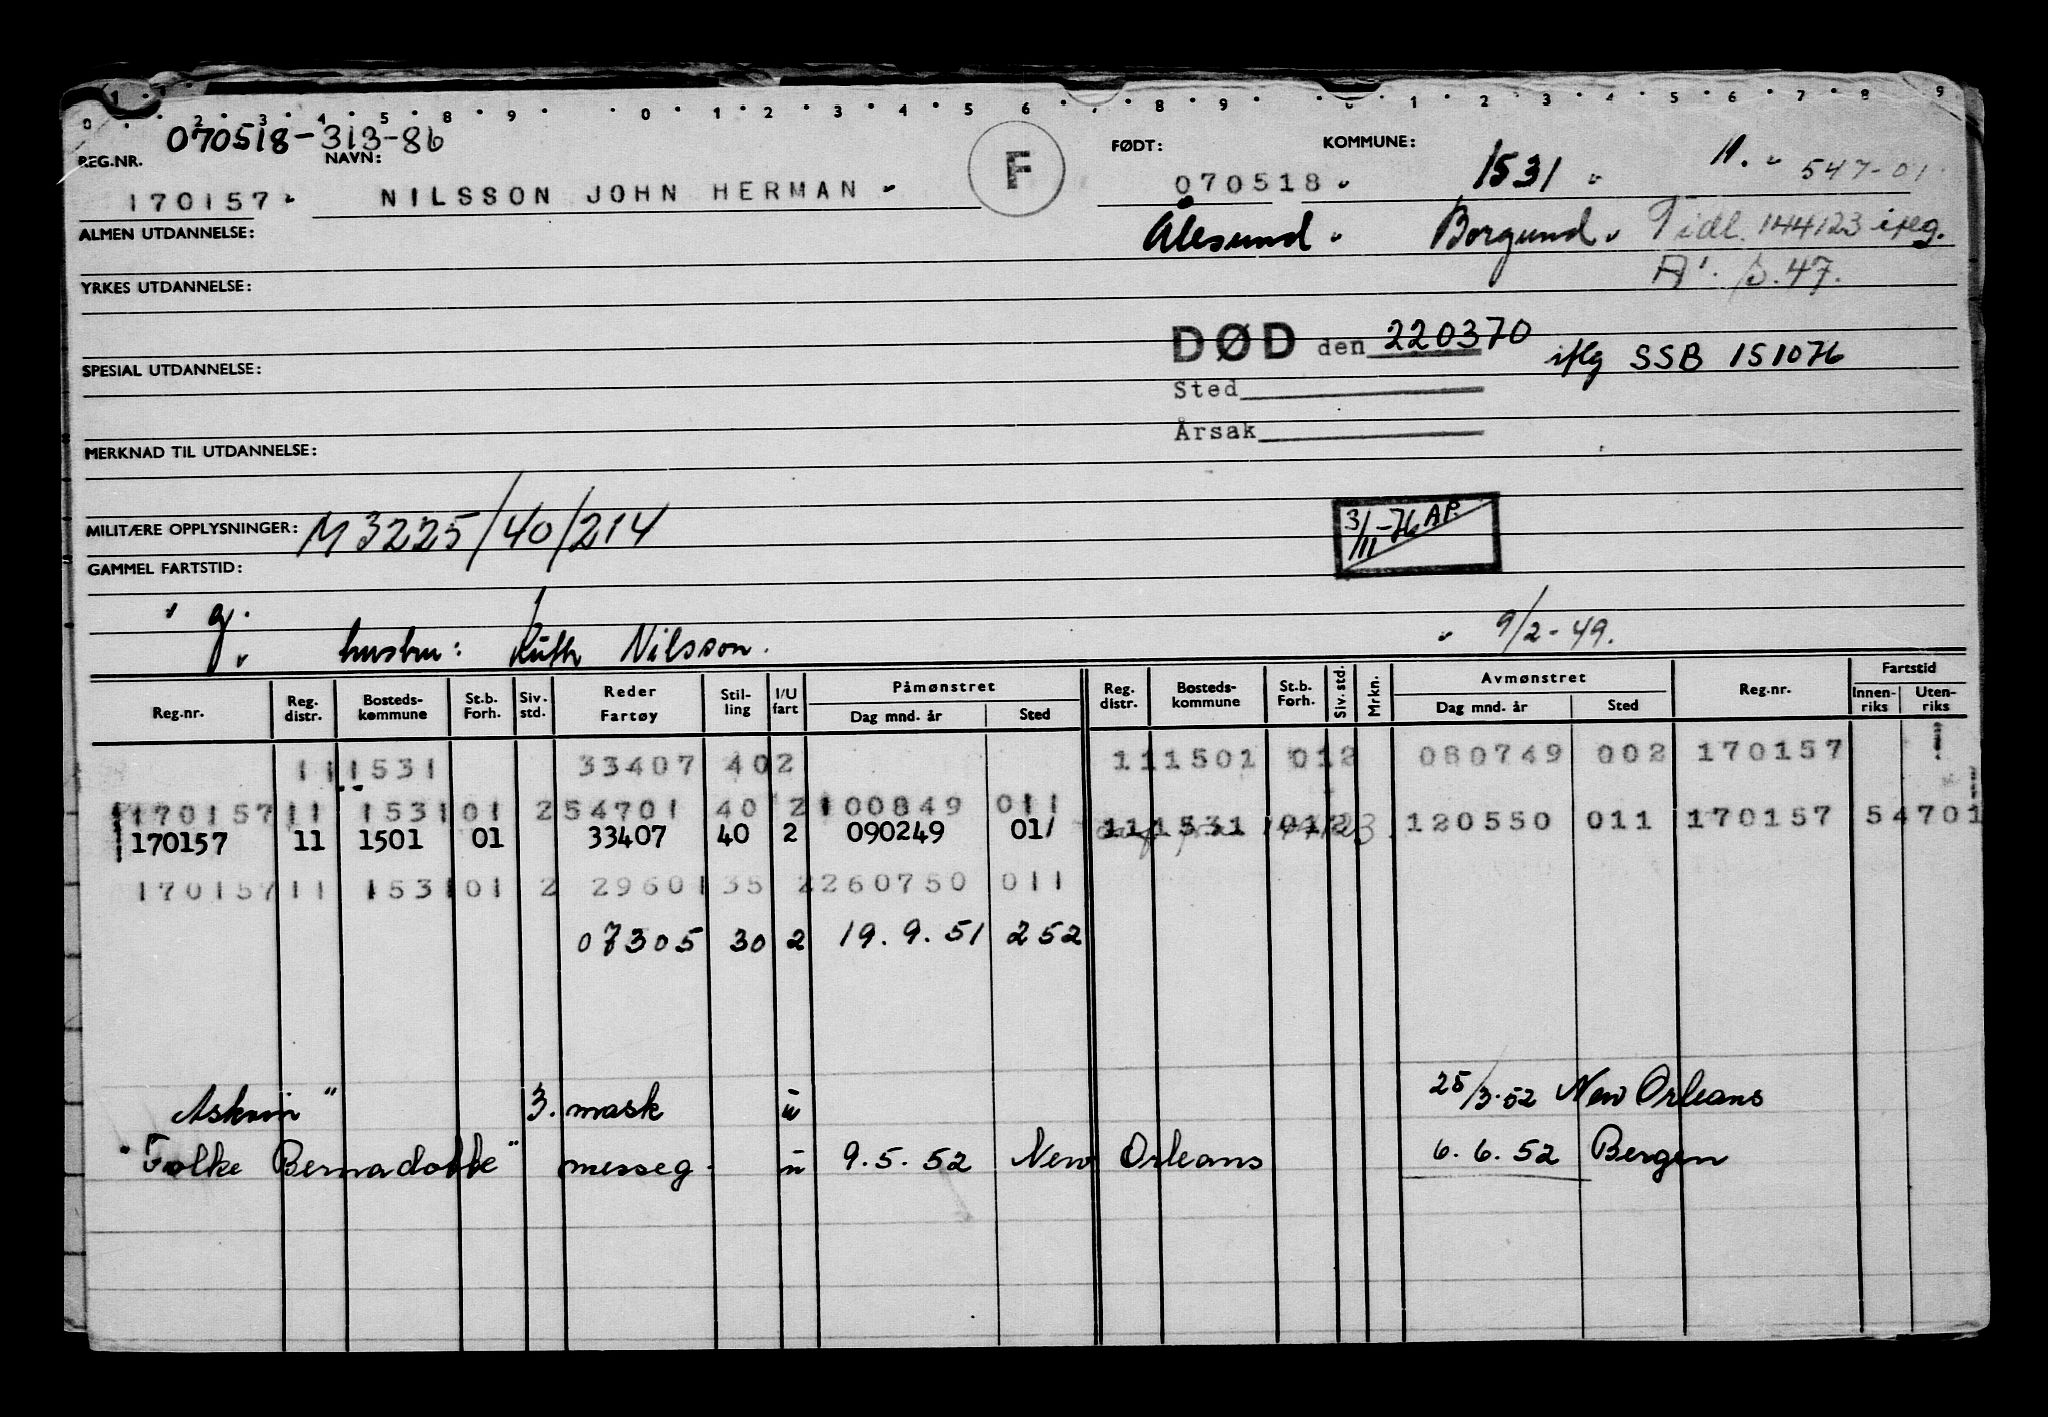 070518-313-86
REG.NR. NAVN: F FØDT: KOMMUNE:
170157 NILSSON JOHN HERMAN 070518 1531 11. 547-01
ALMEN UTDANNELSE: Ålesund Borgund Tidl. 144123 iflg.
A'. p.47.
YRKES UTDANNELSE:
DØD den 220370 iflg SSB 151076
SPESIAL UTDANNELSE:
Sted
Årsak
MERKNAD TIL UTDANNELSE:
MILITÆRE OPPLYSNINGER: M 3225/40/214
3/11-76 AP.
GAMMEL FARTSTID:
g.
hustru: Ruth Nilsson. 9/2-49.
Reg.nr. Reg. distr. Bosteds-kommune St.b. Forh. Siv. std. Reder Fartøy Stil-ling I/U fart Påmønstret Dag mnd. år Sted Reg. distr. Bosteds-kommune St.b. Forh. Siv. std. Mrkn. Avmønstret Dag mnd. år Sted Reg.nr. Fartstid Innen-riks Uten-riks
11 1531 33407 40 2 11 1501 01 2 080749 002 170157
170157 11 1531 01 2 54701 40 2 100849 011 11 1531 01 2 120550 011 170157 54701
170157 11 1501 01 33407 40 2 090249 011
170157 11 1531 01 2 29601 35 2 260750 011
07305 30 2 19.9.51 252
Askvin" 3. mask u 25/3.52 New Orleans
"Folke Bernadotte" messeg. u 9.5.52 New Orleans 6.6.52 Bergen